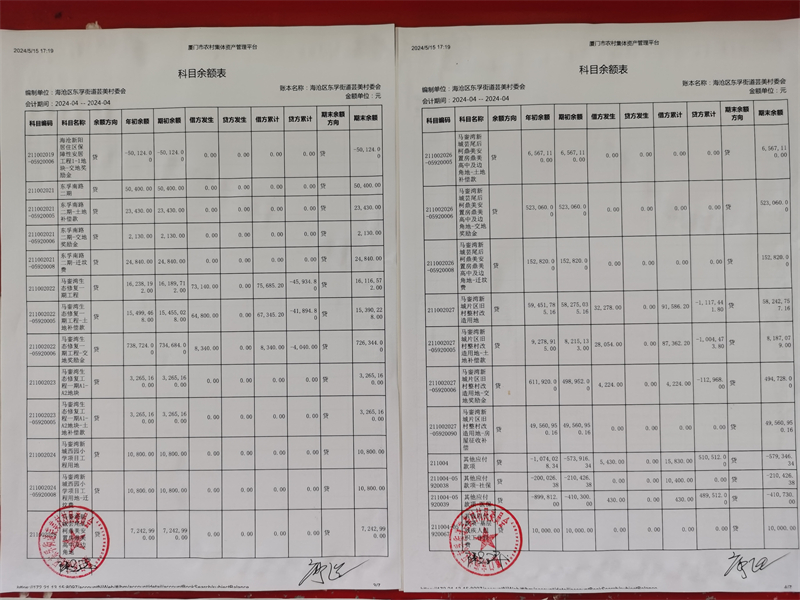 2024/5/15 17:19
厦门市农村集体资产管理平台
科目余额表
编制单位：海沧区东孚街道芸美村委会
账本名称：海沧区东孚街道芸美村委会
会计期间：2024-04 -- 2024-04
金额单位：元
科目编码 科目名称 余额方向 年初余额 期初余额 借方发生 贷方发生 借方累计 贷方累计 期末余额方向 期末余额
211002019-05920006 贷 -50,124.00 -50,124.00 0.00 0.00 0.00 0.00 贷 -50,124.00
211002021 东孚南路二期 贷 50,400.00 50,400.00 0.00 0.00 0.00 0.00 贷 50,400.00
211002021-05920005 东孚南路二期-土地补偿款 贷 23,430.00 23,430.00 0.00 0.00 0.00 0.00 贷 23,430.00
211002021-05920006 东孚南路二期-交地奖励金 贷 2,130.00 2,130.00 0.00 0.00 0.00 0.00 贷 2,130.00
211002021-05920008 东孚南路二期-迁坟费 贷 24,840.00 24,840.00 0.00 0.00 0.00 0.00 贷 24,840.00
211002022 马銮湾生态修复一期工程 贷 16,238,192.00 16,189,712.00 73,140.00 0.00 75,685.20 -45,934.80 贷 16,116,572.00
211002022-05920005 马銮湾生态修复一期工程-土地补偿款 贷 15,499,468.00 15,455,028.00 64,800.00 0.00 67,345.20 -41,894.80 贷 15,390,228.00
211002022-05920006 马銮湾生态修复一期工程-交地奖励金 贷 738,724.00 734,684.00 8,340.00 0.00 8,340.00 -4,040.00 贷 726,344.00
211002023 马銮湾生态修复工程一期A1-A2地块 贷 3,265,160.00 3,265,160.00 0.00 0.00 0.00 0.00 贷 3,265,160.00
211002023-05920005 马銮湾生态修复工程一期A1-A2地块-土地补偿款 贷 3,265,160.00 3,265,160.00 0.00 0.00 0.00 0.00 贷 3,265,160.00
211002024 马銮湾新城西园小学项目工程用地 贷 10,800.00 10,800.00 0.00 0.00 0.00 0.00 贷 10,800.00
211002024-05920008 马銮湾新城西园小学项目工程用地-迁坟费 贷 10,800.00 10,800.00 0.00 0.00 0.00 0.00 贷 10,800.00
贷 7,242,990.00 7,242,990.00 0.00 0.00 0.00 0.00 贷 7,242,990.00
2024/5/15 17:19
厦门市农村集体资产管理平台
科目余额表
编制单位：海沧区东孚街道芸美村委会
账本名称：海沧区东孚街道芸美村委会
会计期间：2024-04 -- 2024-04
金额单位：元
科目编码 科目名称 余额方向 年初余额 期初余额 借方发生 贷方发生 借方累计 贷方累计 期末余额方向 期末余额
211002026-05920005 马銮湾新城芸尾后柯鼎美安置房鼎美高中及边角地-土地补偿款 贷 6,567,110.00 6,567,110.00 0.00 0.00 0.00 0.00 贷 6,567,110.00
211002026-05920006 马銮湾新城芸尾后柯鼎美安置房鼎美高中及边角地-交地奖励金 贷 523,060.00 523,060.00 0.00 0.00 0.00 0.00 贷 523,060.00
211002026-05920008 马銮湾新城芸尾后柯鼎美安置房鼎美高中及边角地-迁坟费 贷 152,820.00 152,820.00 0.00 0.00 0.00 0.00 贷 152,820.00
211002027 马銮湾新城片区旧村整村改造用地 贷 59,451,785.16 58,275,035.16 32,278.00 0.00 91,586.20 贷 58,242,757.16
211002027-05920005 马銮湾新城片区旧村整村改造用地-土地补偿款 贷 8,278,915.00 8,215,133.00 28,054.00 0.00 87,362.20 -1,004,473.80 贷 8,187,079.00
211002027-05920006 马銮湾新城片区旧村整村改造用地-交地奖励金 贷 611,920.00 498,952.00 4,224.00 0.00 4,224.00 -112,968.00 贷 494,728.00
211002027-05920090 马銮湾新城片区旧村整村改造用地-房屋征收补偿 贷 49,560,950.16 49,560,950.16 0.00 0.00 0.00 0.00 贷 49,560,950.16
211004 其他应付款项 贷 -1,074,028.34 -573,916.34 5,430.00 0.00 15,830.00 510,512.00 贷 -579,346.34
其他应付款项-社保 贷 -200,026.38 -210,426.38 0.00 0.00 10,400.00 0.00 贷 -210,426.38
贷 -899,812.00 -410,300.00 430.00 0.00 430.00 489,512.00 贷 -410,730.00
贷 10,000.00 10,000.00 0.00 0.00 0.00 0.00 贷 10,000.00